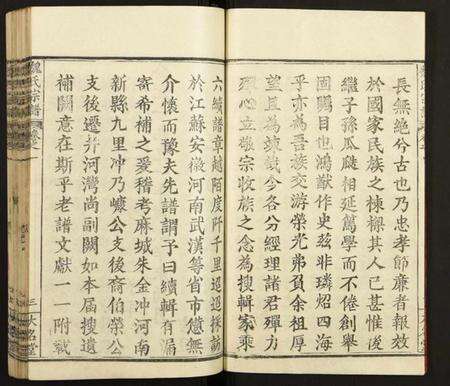 長無絶兮古也乃忠孝節廉者報效
於國家民族之棟樑其人已甚惟後
繼子孫瓜瓞相延篤學而不倦創舉
圖屬目也鴻猷作史兹非璘炤四海
乎亦為吾族交游榮光弗負余祖厚
望且為兹今各分經理諸君殫力
殫心立敬宗收族之念為搜輯家乘
六續譜章越陌度阡千里迢迢採訪
於江蘇安徽河南武漢等省市儻無
介懷而豫夫先譜謂予曰續輯有漏
寄希補之爰稽考麻城朱金冲河南
新縣九里冲乃㯖公支後裔伯榮公
支後遷并河灣尚副闕如本届搜遺
補闕意在斯乎老譜文獻一一附載
魏氏宗譜
卷之一
三
大名堂